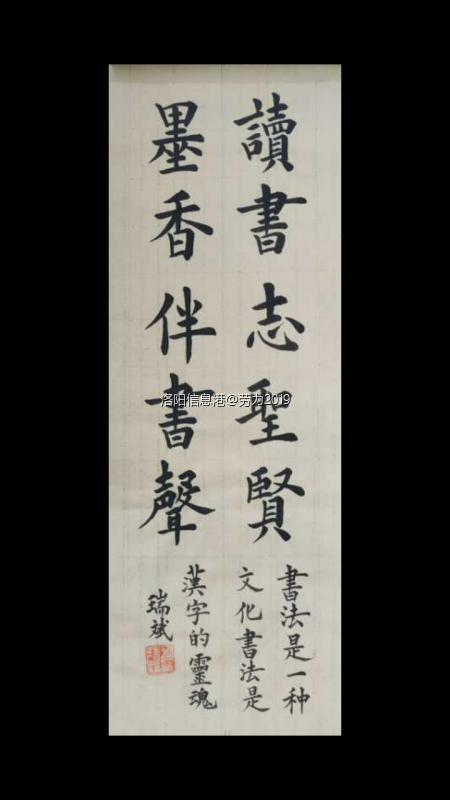 讀書志聖賢
墨香伴書聲
書法是一种
文化書法是
漢字的靈魂
瑞斌
洛阳信息港@劳力2019